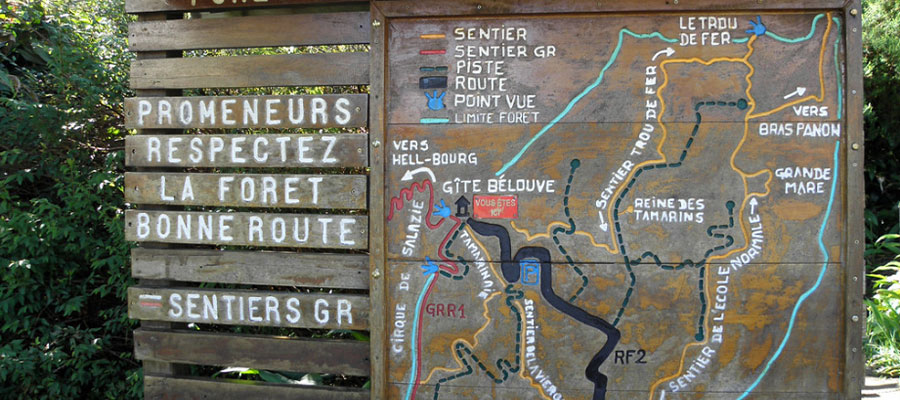 PROMENEURS
RESPECTEZ
LA FORET
BONNE ROUTE
SENTIERS GR
SENTIER
SENTIER GR
PISTE
ROUTE
POINT VUE
LIMITE FORET
LE TROU
DE FER
VERS
HELL-BOURG
GÎTE BÉLOUVE
VOUS ÊTES
ICI
SENTIER TROU DE FER
VERS
BRAS PANON
GRANDE
MARE
REINE DES
TAMARINS
CIRQUE DE SALAZIE
TAMARINUM
GRR1
P
SENTIER DE L'ECOLE NORMALE
RF2